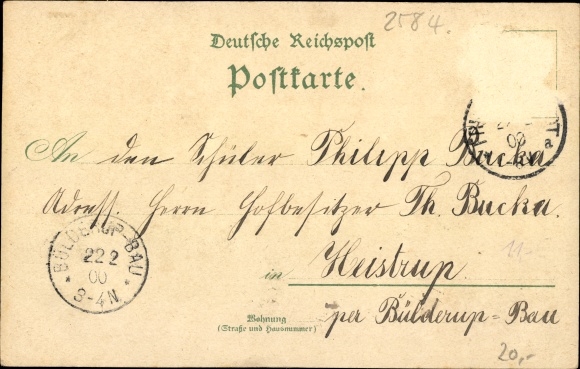 2584.
Deutsche Reichspost
Postkarte.
An den Schüler Philipp Bucka
Adress. Herrn Hofbesitzer Th. Bucka.
BÜLDERUP-BAU
22 2
00
3-4N.
11.-
in Heistrup
Wohnung
(Straße und Hausnummer)
per Bülderup-Bau
20,-